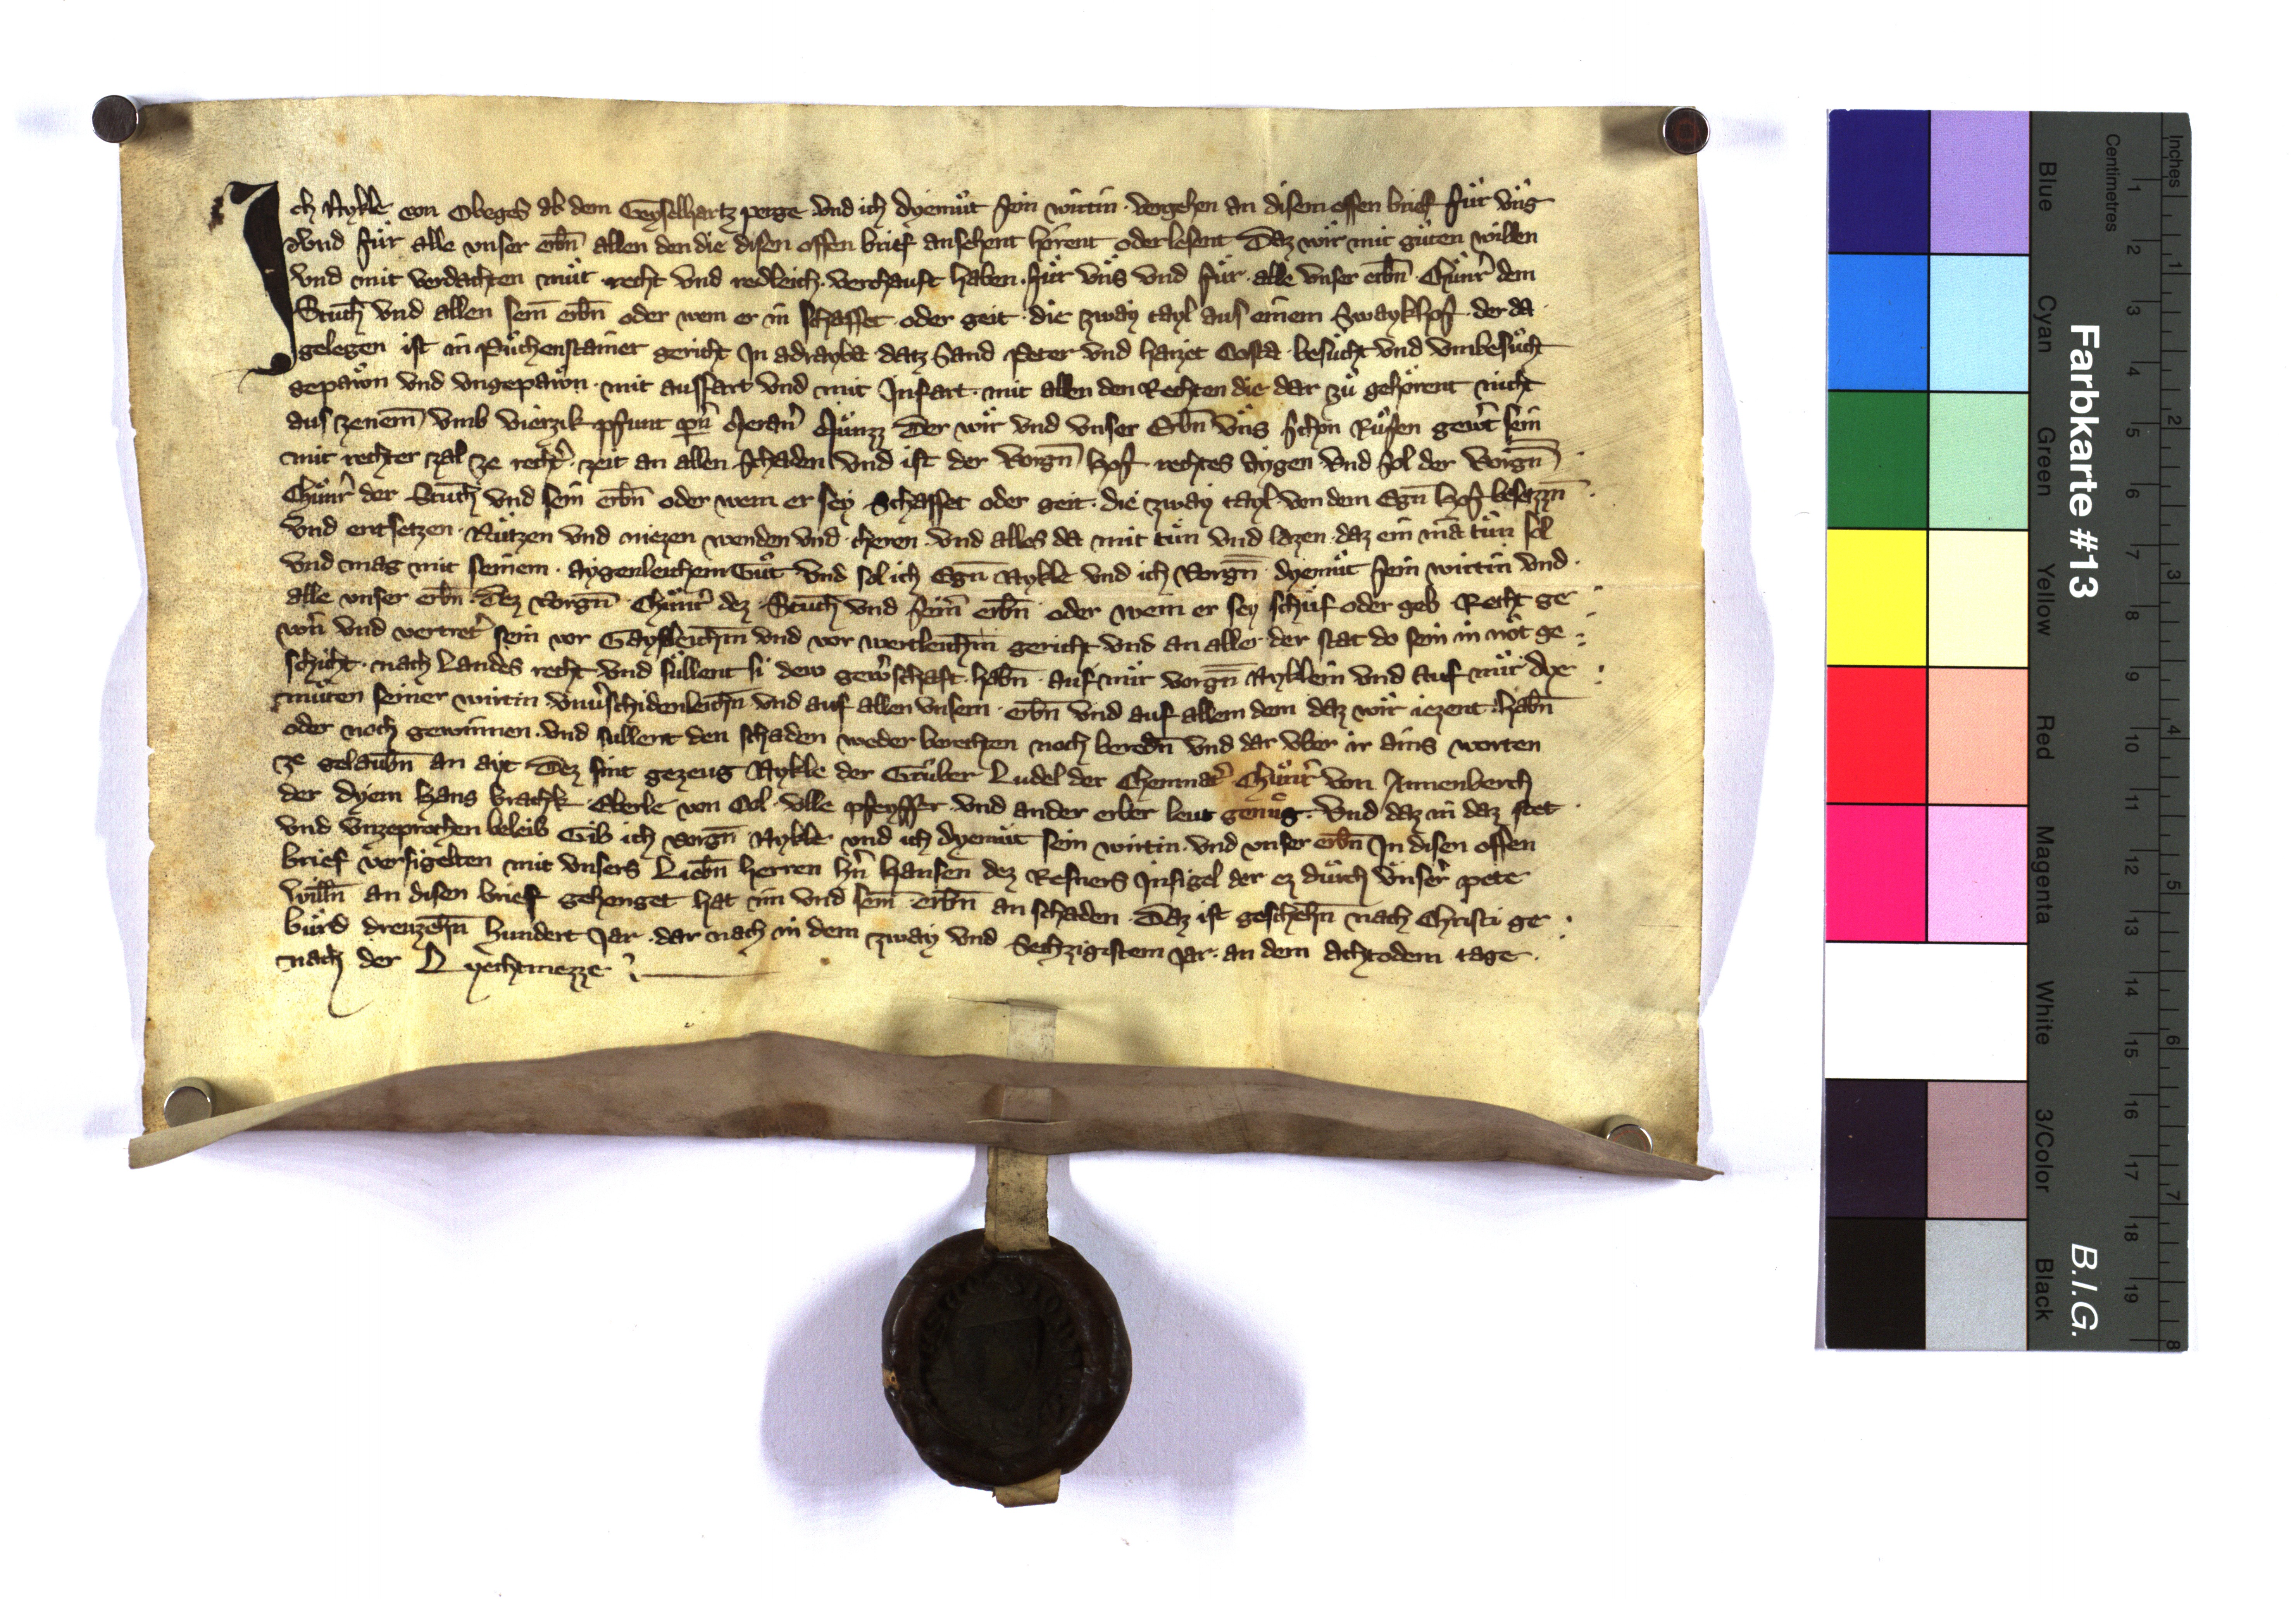 Ich Nykle von Obeges ab dem Geyselhartz perge vnd ich dyemuͦt sein wirtin vergehen an disem offen brief fuͤr vns
vnd fuͤr alle vnser erbn̄ allen den die disen offen brief ansehent hoͤrent oder lesent Daz wir mit guͤten willen
vnd mit verdachten muͦt recht vnd redleich verchauft haben fuͤr vns vnd fuͤr alle vnser erbn̄ Chuͦnr̄ dem
Stuch vnd allen sein̄ erbn̄ oder wem er in schaffet oder geit die zway tayl aus einem Swaykhof der da
gelegen ist in Puͦchenstainer gericht In adrayba datz Sand Peter vnd haizet Costa besuͦcht vnd vmbesuͦcht
gepawn vnd vngepawn mit ausfart vnd mit Infart mit allen den Rechten die dar zuͦ gehoͤrent nicht
aus zenem̄ vmb vierzik pfunt pn̄ Meran̄ Muͤnzz Der wir vnd vnser Erbn̄ vns schon Ruͤfen gewert sein
mit rechter zal ze recht̄ zeit an allen schaden vnd ist der vorgn̄ hof rechtes aygen vnd sol der vorgn̄
Chuͦnr̄ der Stuch vnd sein erbn̄ oder wem er sey Schaffet oder geit die zway tayl von dem Egn̄ hof besetzn̄
vnd entsetzen Nutzen vnd niezen wenden vnd cheren vnd alles da mit tuͦn vnd lazen daz ein mā tuͦn sol
vnd mag mit seinem aygenleichem Guͦt vnd sol ich Egn̄ Nykle vnd ich Vorgn̄ dyemuͦt sein wirtin vnd
alle vnser erbn̄ Dez vorgn̄ Chuͦnr̄ dez Stuch vnd sein̄ erbn̄ oder wem er sey schuͦf oder geb Recht ge
wern̄ vnd vertret̄ sein vor Gaystleichem vnd vor wertleichem gericht vnd an aller der stat do sein in not ge
schicht nach Landes recht vnd suͤllent si dew gewerschaft habn̄ auf mir vorgn̄ Nyklein vnd auf mir dye
muͦten seiner wirtin vnuerschidenleichn̄ vnd auf allen vnsern erbn̄ vnd auf allem dem daz wir iezent habn̄
oder noch gewinnen vnd sullent den schaden weder berechten noch beredn̄ vnd dar vber ir ains worten
ze gelaubn̄ an ayt Dez sint gezeug Nykle der Gruber Ludel der Chemnat̄ Chuͦnr̄ von Annenberch
der dyem Hans brachk Eberle von Col vlle pfeyffer vnd ander erber leut genuͦg Vnd daz in daz stet
vnd vnzeprochen beleib Gib ich vorgn̄ Nykle vnd ich dyemuͦt sein wirtin vnd vnser erbn̄ In disen offen
brief versigelten mit vnsers Liebn̄ herren hn̄ Hansen dez Refners Insigel der ez durch vnser̄ pete
willn̄ an disen brief gehenget hat im vnd sein̄ erbn̄ an schaden Daz ist geschehn̄ nach Christi ge
buͤrd dreuzehn̄ hundert Jar dar nach in dem zway vnd Sechzigistem Jar an dem achtodem tage
nach der Lyechtmezze
Farbkarte #13
B.I.G.
Centimetres
Inches
Blue
Cyan
Green
Yellow
Red
Magenta
White
3/Color
Black
1 2 3 4 5 6 7 8 9 10 11 12 13 14 15 16 17 18 19
1 2 3 4 5 6 7 8